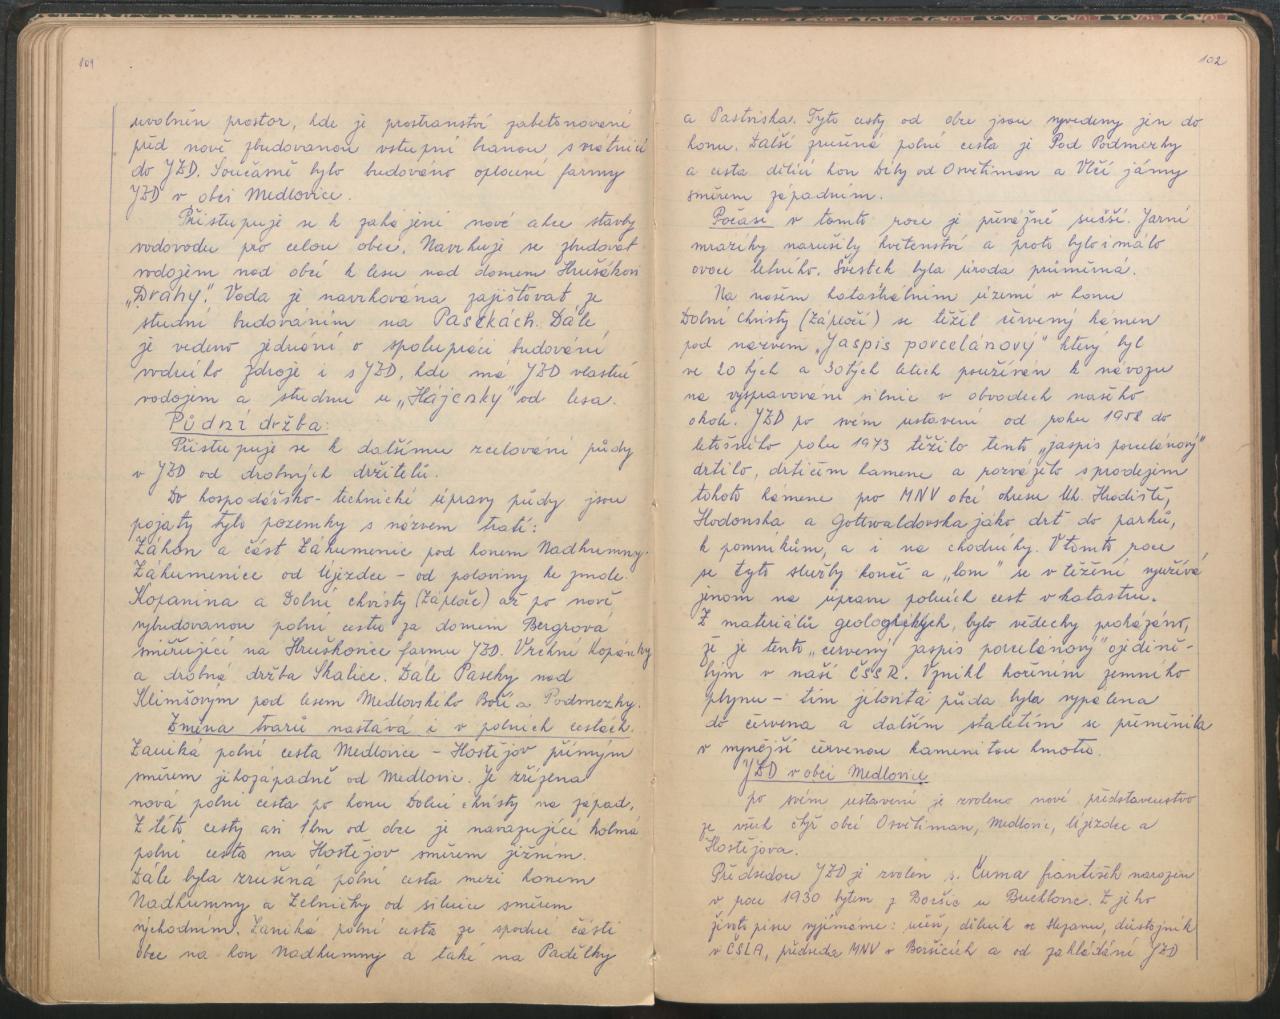 101
uvolněn prostor, kde je prostranství zabetonované
před nově zbudovanou vstupní branou s vrátnicí
do JZD. Současně bylo budováno oplocení farmy
JZD v obci Medlovice.
Přistupuje se k zahájení nové akce stavby
vodovodu pro celou obec. Navrhuje se zbudovat
vodojem nad obcí k lesu nad domem Hruškovi
„Drahy". Voda je navrhována zajišťovat ze
studní budováním na Pasekách. Dále
je vedeno jednání o spolupráci budování
vodního zdroje i s JZD, kde má JZD vlastní
vodojem a studnu u „Hájenky" od lesa.
Půdní držba:
Přistupuje se k dalšímu zcelování půdy
v JZD od drobných držitelů.
Do hospodářsko-technické úpravy půdy jsou
pojaty tyto pozemky s názvem tratí:
Záhon a část Záhumenic pod honem Nadhumny.
Záhumenice od Újezdce - od poloviny ke zmole.
Kopanina a Dolní chřisty (Záploče) až po nově
vybudovanou polní cestu za domem Bergrová
směřující na Hruškovice farmu JZD. Vrchní kopánky
a drobná držba Skalice. Dále Paseky nad
Klimšovým pod lesem Medlovského Boří a Podmezky.
Změna tvarů nastává i v polních cestách.
Zaniká polní cesta Medlovice - Hostějov přímým
směrem jihozápadně od Medlovic. Je zřízena
nová polní cesta po honu Dolní chřisty na západ.
Z této cesty asi 1km od obce je navazující kolmá
polní cesta na Hostějov směrem jižním.
Dále byla zrušená polní cesta mezi honem
Nadhumny a Zelničky od silnice směrem
východním. Zaniká polní cesta ze spodní části
obce na hon Nadhumny a také na Padělky
102
a Pastviska. Tyto cesty od obce jsou vyvedeny jen do
honu. Další zrušená polní cesta je Pod Podmezky
a cesta dělící hon Díly od Osvětiman a Vlčí jámy
směrem západním.
Počasí v tomto roce je převážně sušší. Jarní
mrazíky narušily květenství a proto bylo i málo
ovoce letního. Švestek byla úroda průměrná.
Na našem katastrálním území v honu
Dolní Chřisty (Zápločí) se těžil červený kámen
pod názvem „Jaspis porcelánový" který byl
ve 20tých a 30tých letech používán k návozu
na vyspravování silnic v obvodech našeho
okolí. JZD po svém ustavení od roku 1958 do
letošního roku 1973 těžilo tento „jaspis porcelánový"
drtilo, drtičem kamene a rozváželo s prodejem
tohoto kámene pro MNV obcí okresu Uh. Hradiště,
Hodonska a Gottwaldovska jako drť do parků,
k pomníkům, a i na chodníky. V tomto roce
se tyto služby končí a „lom" se v těžení využívá
jenom na úpravu polních cest v katastru.
Z materiálů geologických, bylo vědecky prokázáno,
že je tento „červený jaspis porcelánový" ojedině-
lým v naší ČSSR. Vznikl hořením zemního
plynu - tím jílovitá půda byla vypálena
do červena a dalším staletím se přeměnila
v nynější červenou kamenitou hmotu.
JZD v obci Medlovice
po svém ustavení je zvoleno nové představenstvo
ze všech čtyř obcí Osvětiman, Medlovic, Újezdce a
Hostějova.
Předsedou JZD je zvolen s. Čuma František narozen
v roce 1930 bytem z Boršic u Buchlovic. Z jeho
životopisu vyjímáme: učeň, dělník ve Hepanu, důstojník
v ČSLA, předseda MNV v Boršicích a od zakládání JZD